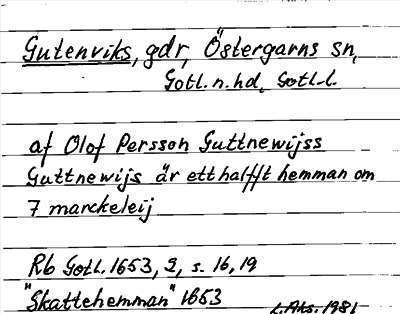 Gutenviks, gdr, Östergarns sn,
Gotl. n. hd, Gotl. l.
af Olof Persson Guttnewijss
Guttnewijs är ett halfft hemman om
7 marckeleij
Rb Gotl. 1653, 2, s. 16, 19
"Skattehemman" 1653
L. Aks. 1981